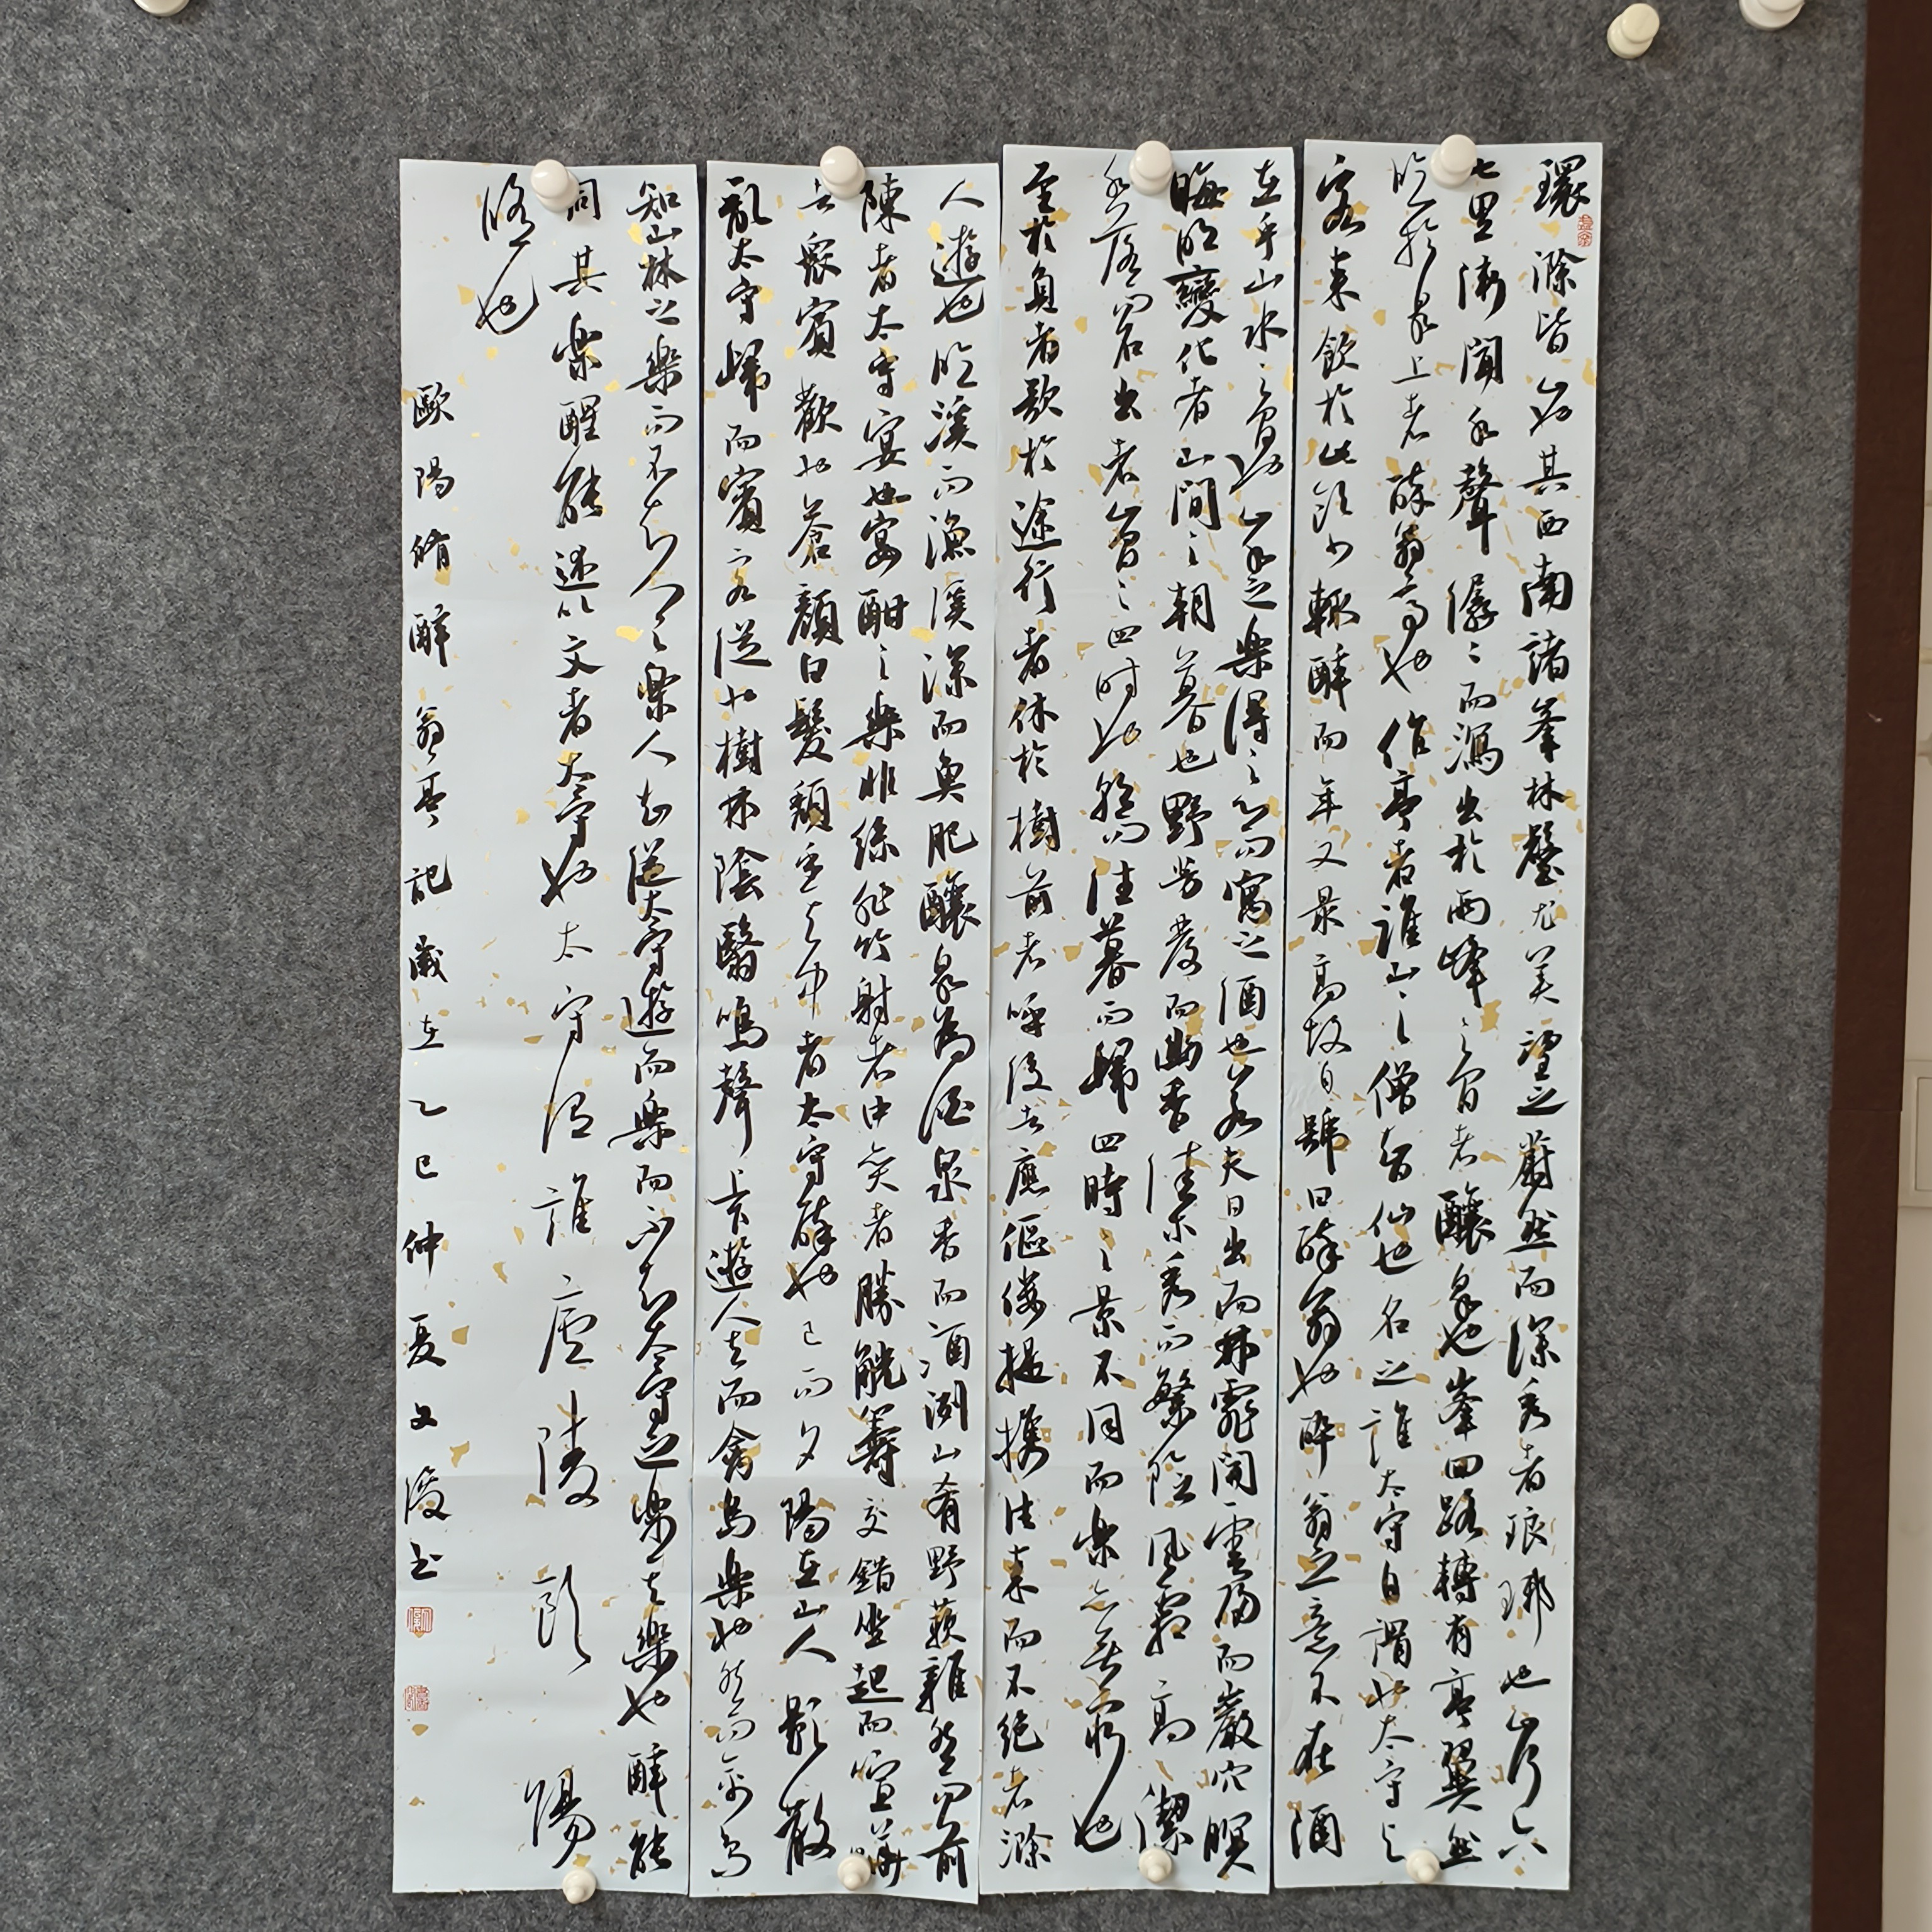 環滁皆山也其西南諸峯林壑尤美望之蔚然而深秀者琅琊也山行六
七里漸聞水聲潺〻而瀉出於兩峰之間者釀泉也峯回路轉有亭翼然
臨於泉上者醉翁亭也作亭者誰山之僧智仙也名之誰太守自謂也太守與
客來飲於此飲少輒醉而年又最高故自號曰醉翁也醉翁之意不在酒
在乎山水之間也山水之樂得之心而寓之酒也若夫日出而林霏開雲歸而巖穴暝
晦明變化者山間之朝暮也野芳發而幽香佳木秀而繁陰風霜高潔
水落而石出者山間之四時也朝而往暮而歸四時之景不同而樂亦無窮也
至於負者歌於途行者休於樹前者呼後者應傴僂提攜往來而不絕者滁
人遊也臨溪而漁溪深而魚肥釀泉為酒泉香而酒洌山肴野蔌雜然而前
陳者太守宴也宴酣之樂非絲非竹射者中奕者勝觥籌交錯坐起而諠譁
者衆賓歡也蒼顏白髮頹乎其中者太守醉也已而夕陽在山人影散
亂太守歸而賓客從也樹林陰翳鳴聲上下遊人去而禽鳥樂也然而禽鳥
知山林之樂而不知人之樂人知從太守遊而樂而不知太守之樂其樂也醉能
同其樂醒能述以文者太守也太守謂誰廬陵歐陽
修也
歐陽脩醉翁亭記歲在乙巳仲夏文浚書